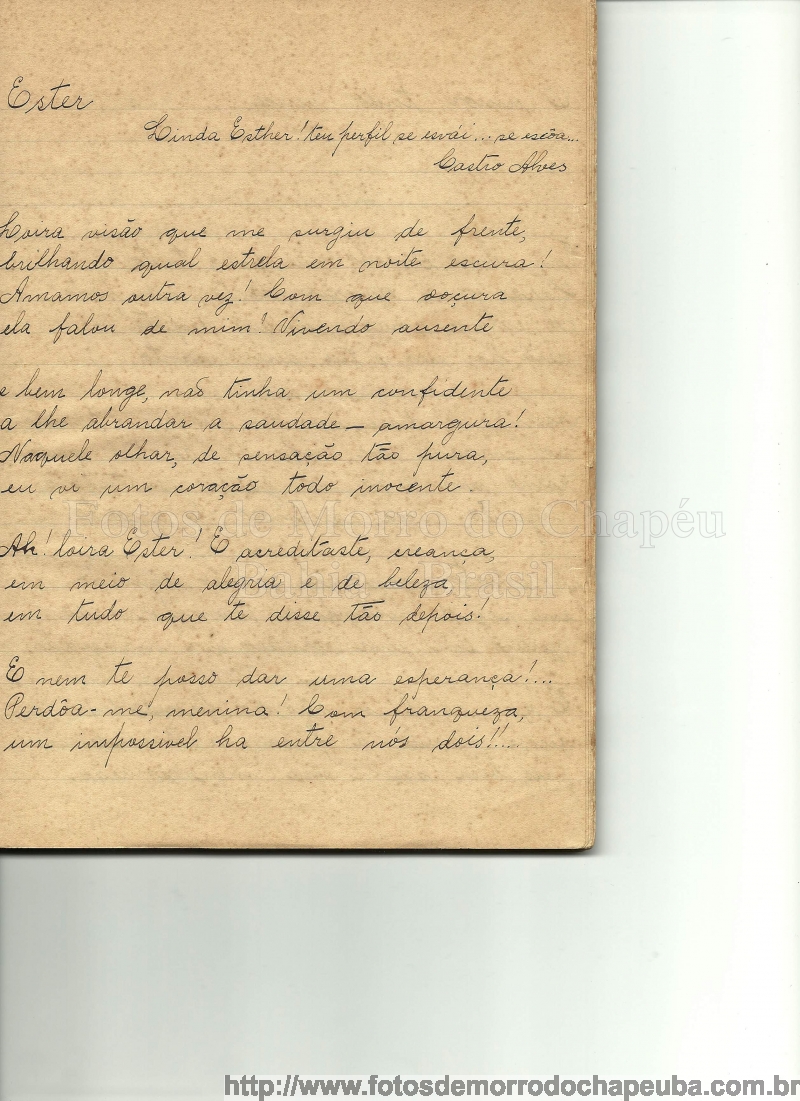 Ester
Linda Esther! teu perfil se esvái... se escôa...
Castro Alves
Loira visão que me surgiu de frente,
brilhando qual estrela em noite escura!
Amamos outra vez! Com que doçura
ela falou de mim! Vivendo ausente
e bem longe, não tinha um confidente
a lhe abrandar a saudade — amargura!
Naquele olhar, de sensação tão pura,
eu vi um coração todo inocente.
Ah! loira Ester! E acreditaste, creança,
em meio de alegria e de beleza,
em tudo que te disse tão depois!
E nem te posso dar uma esperança!...
Perdôa-me, menina! Com franqueza,
um impossivel ha entre nós dois!!...
Fotos de Morro do Chapéu
Bahia - Brasil
http://www.fotosdemorrodochapeuba.com.br